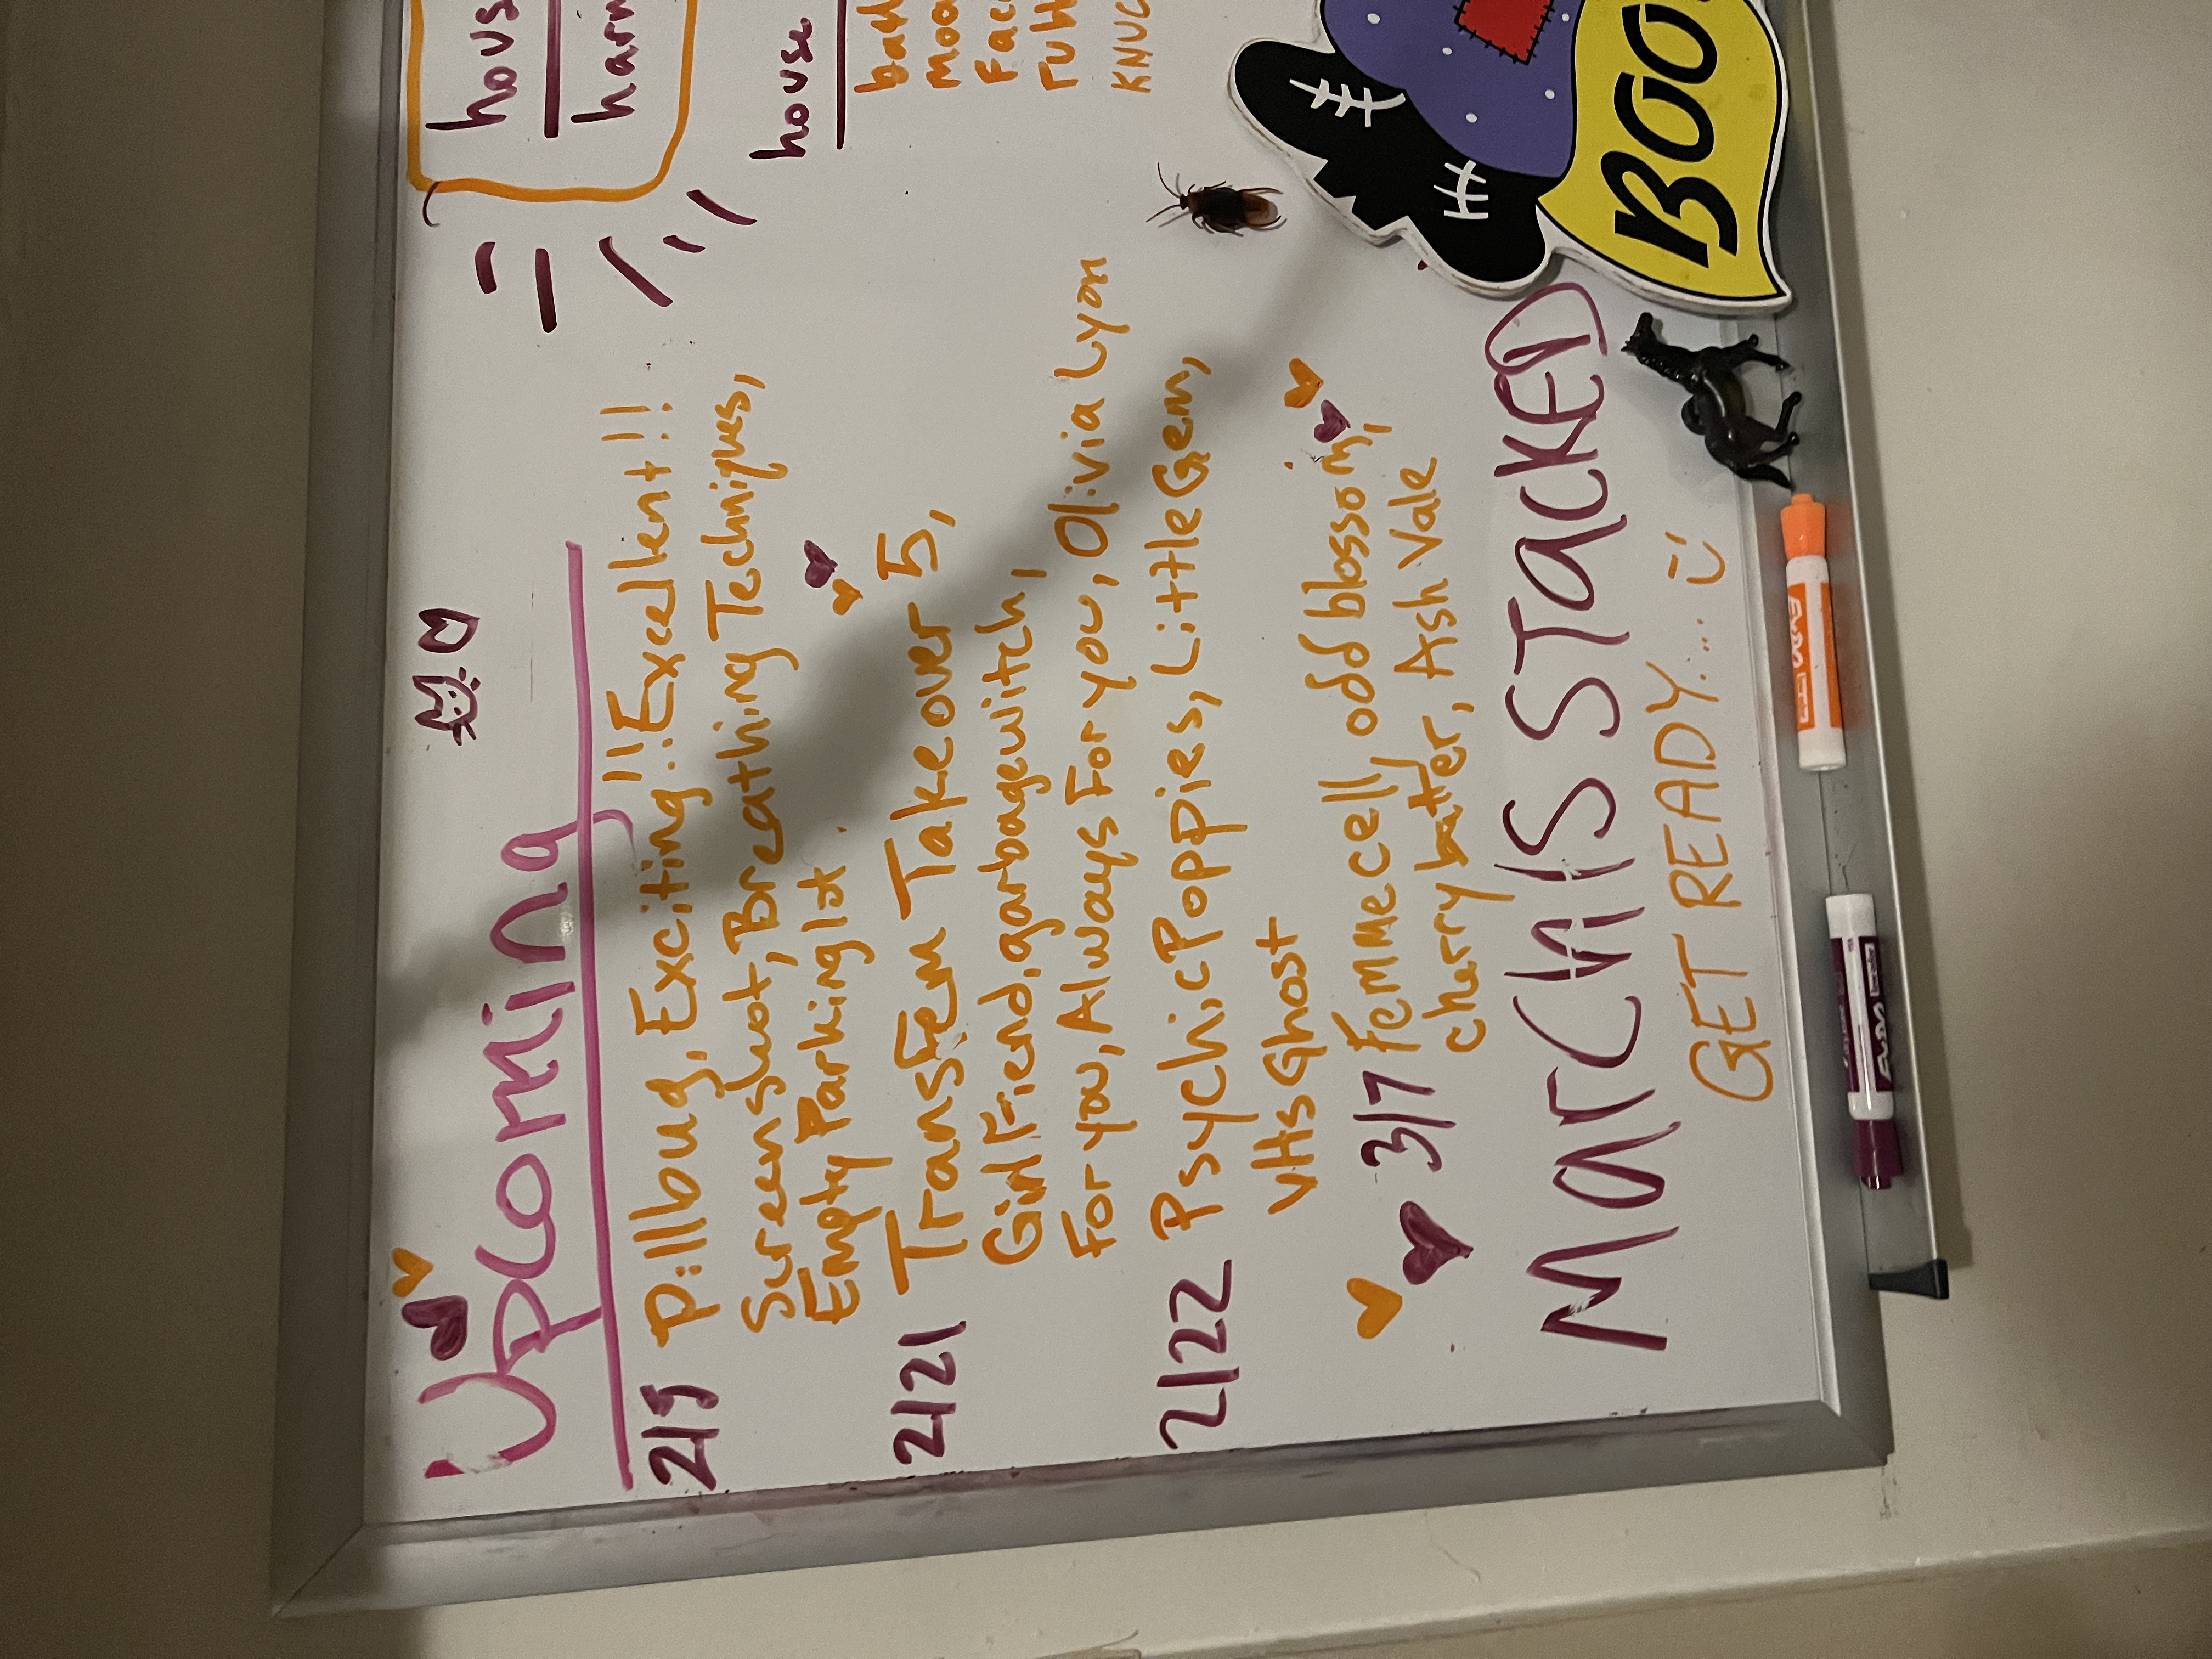 Upcoming
2/5 Pillbug, Exciting!!Excellent!!
Screenshot, Breathing Techniques,
Empty Parking lot
2/21 Transfem Takeover 5,
GirlFriend, garbagewitch,
For you, Always For you, Olivia Lyon
2/22 Psychic Poppies, Little Gem,
VHS Ghost
3/7 Femmecell, odd blossom,
cherry batter, Ash Vale
MarCH IS STaCKED
GET READY.... :)
house
BOO
EXPO
EXPO